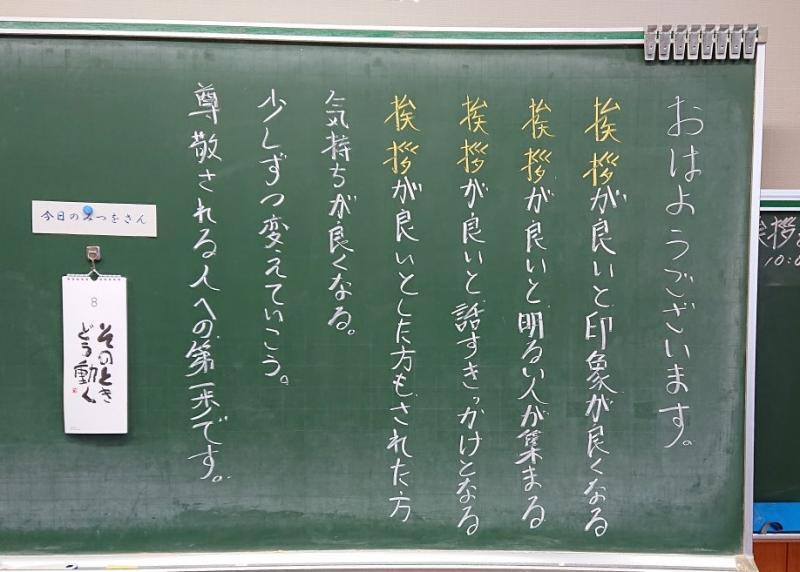 おはようございます。
挨拶が良いと印象が良くなる
挨拶が良いと明るい人が集まる
挨拶が良いと話すきっかけとなる
挨拶が良いとした方もされた方
気持ちが良くなる。
少しずつ変えていこう。
尊敬される人への第一歩です。
今日のみつをさん
8
そのとき
どう動く
挨拶
10:0